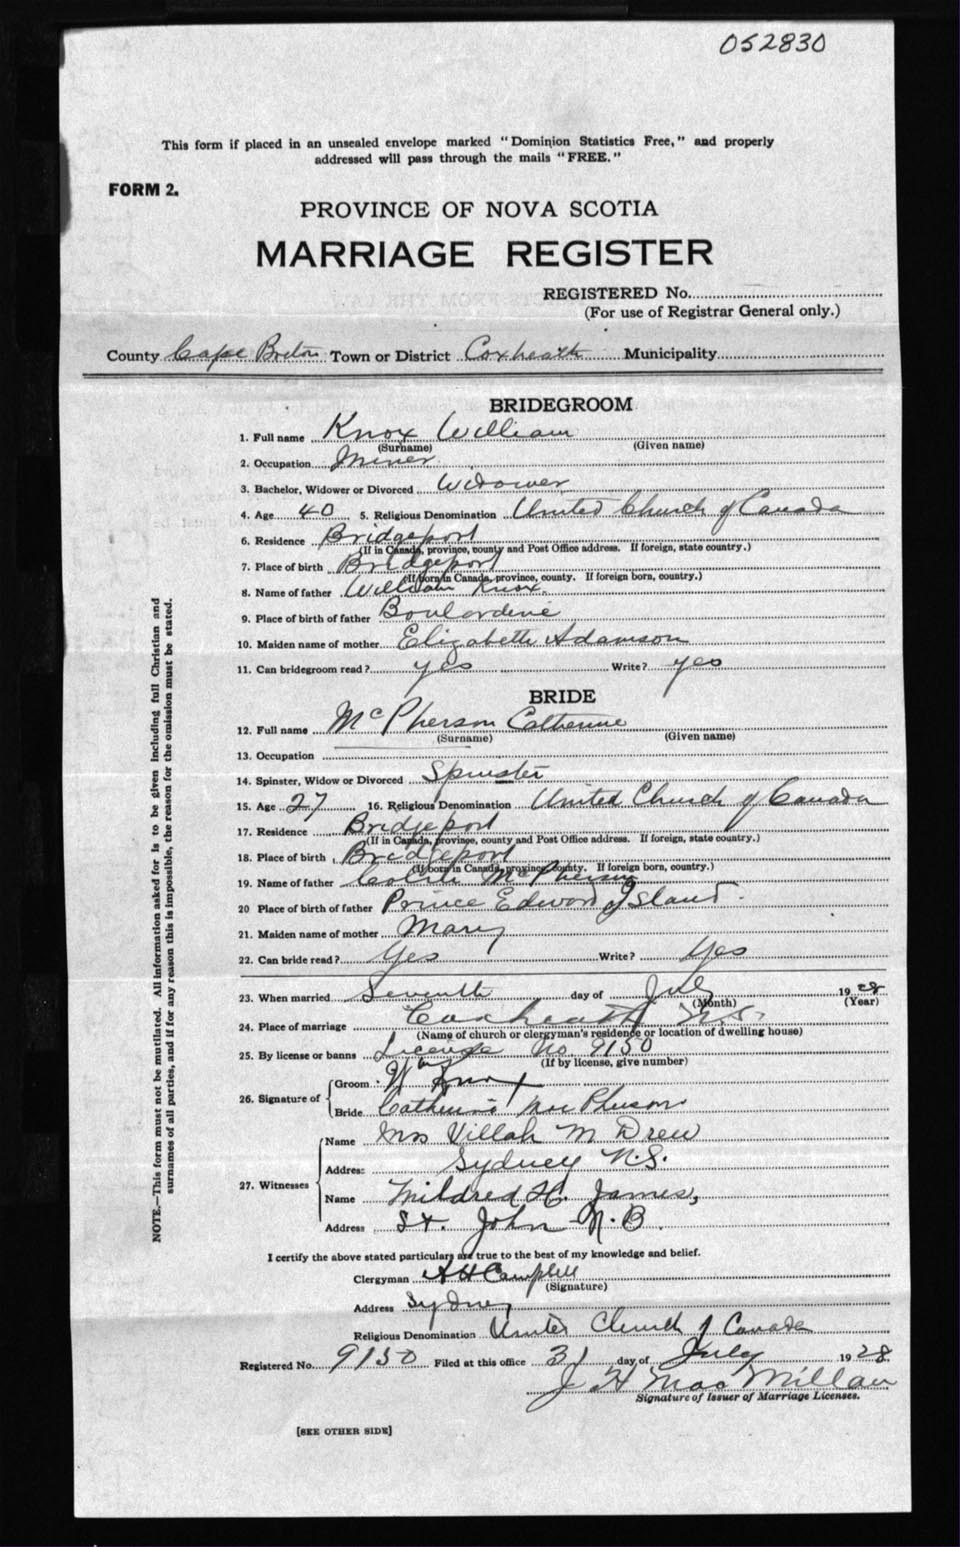 052830
This form if placed in an unsealed envelope marked "Dominion Statistics Free," and properly
addressed will pass through the mails "FREE."
FORM 2.
PROVINCE OF NOVA SCOTIA
MARRIAGE REGISTER
REGISTERED No.
(For use of Registrar General only.)
County Cape Breton Town or District Coxheath Municipality
BRIDEGROOM
1. Full name Knox William
(Surname) (Given name)
2. Occupation Miner
3. Bachelor, Widower or Divorced Widower
4. Age 40 5. Religious Denomination United Church of Canada
6. Residence Bridgeport
(If in Canada, province, county and Post Office address. If foreign, state country.)
7. Place of birth Bridgeport
(If born in Canada, province, county. If foreign born, country.)
8. Name of father William Knox.
9. Place of birth of father Boulardrie
10. Maiden name of mother Elizabeth Adamson
11. Can bridegroom read? yes Write? yes
BRIDE
12. Full name McPherson Catherine
(Surname) (Given name)
13. Occupation
14. Spinster, Widow or Divorced Spinster
15. Age 27 16. Religious Denomination United Church of Canada
17. Residence Bridgeport
(If in Canada, province, county and Post Office address. If foreign, state country.)
18. Place of birth Bridgeport
(If born in Canada, province, county. If foreign born, country.)
19. Name of father Colin McPherson
20 Place of birth of father Prince Edward Island.
21. Maiden name of mother Mary
22. Can bride read? Yes Write? Yes
23. When married Seventh day of July 1928
(Month) (Year)
24. Place of marriage Coxheath N.S.
(Name of church or clergyman's residence or location of dwelling house)
25. By license or banns License No. 9150
(If by license, give number)
26. Signature of
Groom Wm Knox
Bride Catherine MacPherson
27. Witnesses
Name Mrs Villah M Drew
Address Sydney N.S.
Name Mildred H. James,
Address St. John N.B.
I certify the above stated particulars are true to the best of my knowledge and belief.
Clergyman A H Campbell
(Signature)
Address Sydney
Religious Denomination United Church of Canada
Registered No. 9150 Filed at this office 31 day of July 1928
J H MacMillan
Signature of Issuer of Marriage Licenses.
[SEE OTHER SIDE]
NOTE.—This form must not be mutilated. All information asked for is to be given including full Christian and
surnames of all parties, and if for any reason this is impossible, the reason for the omission must be stated.